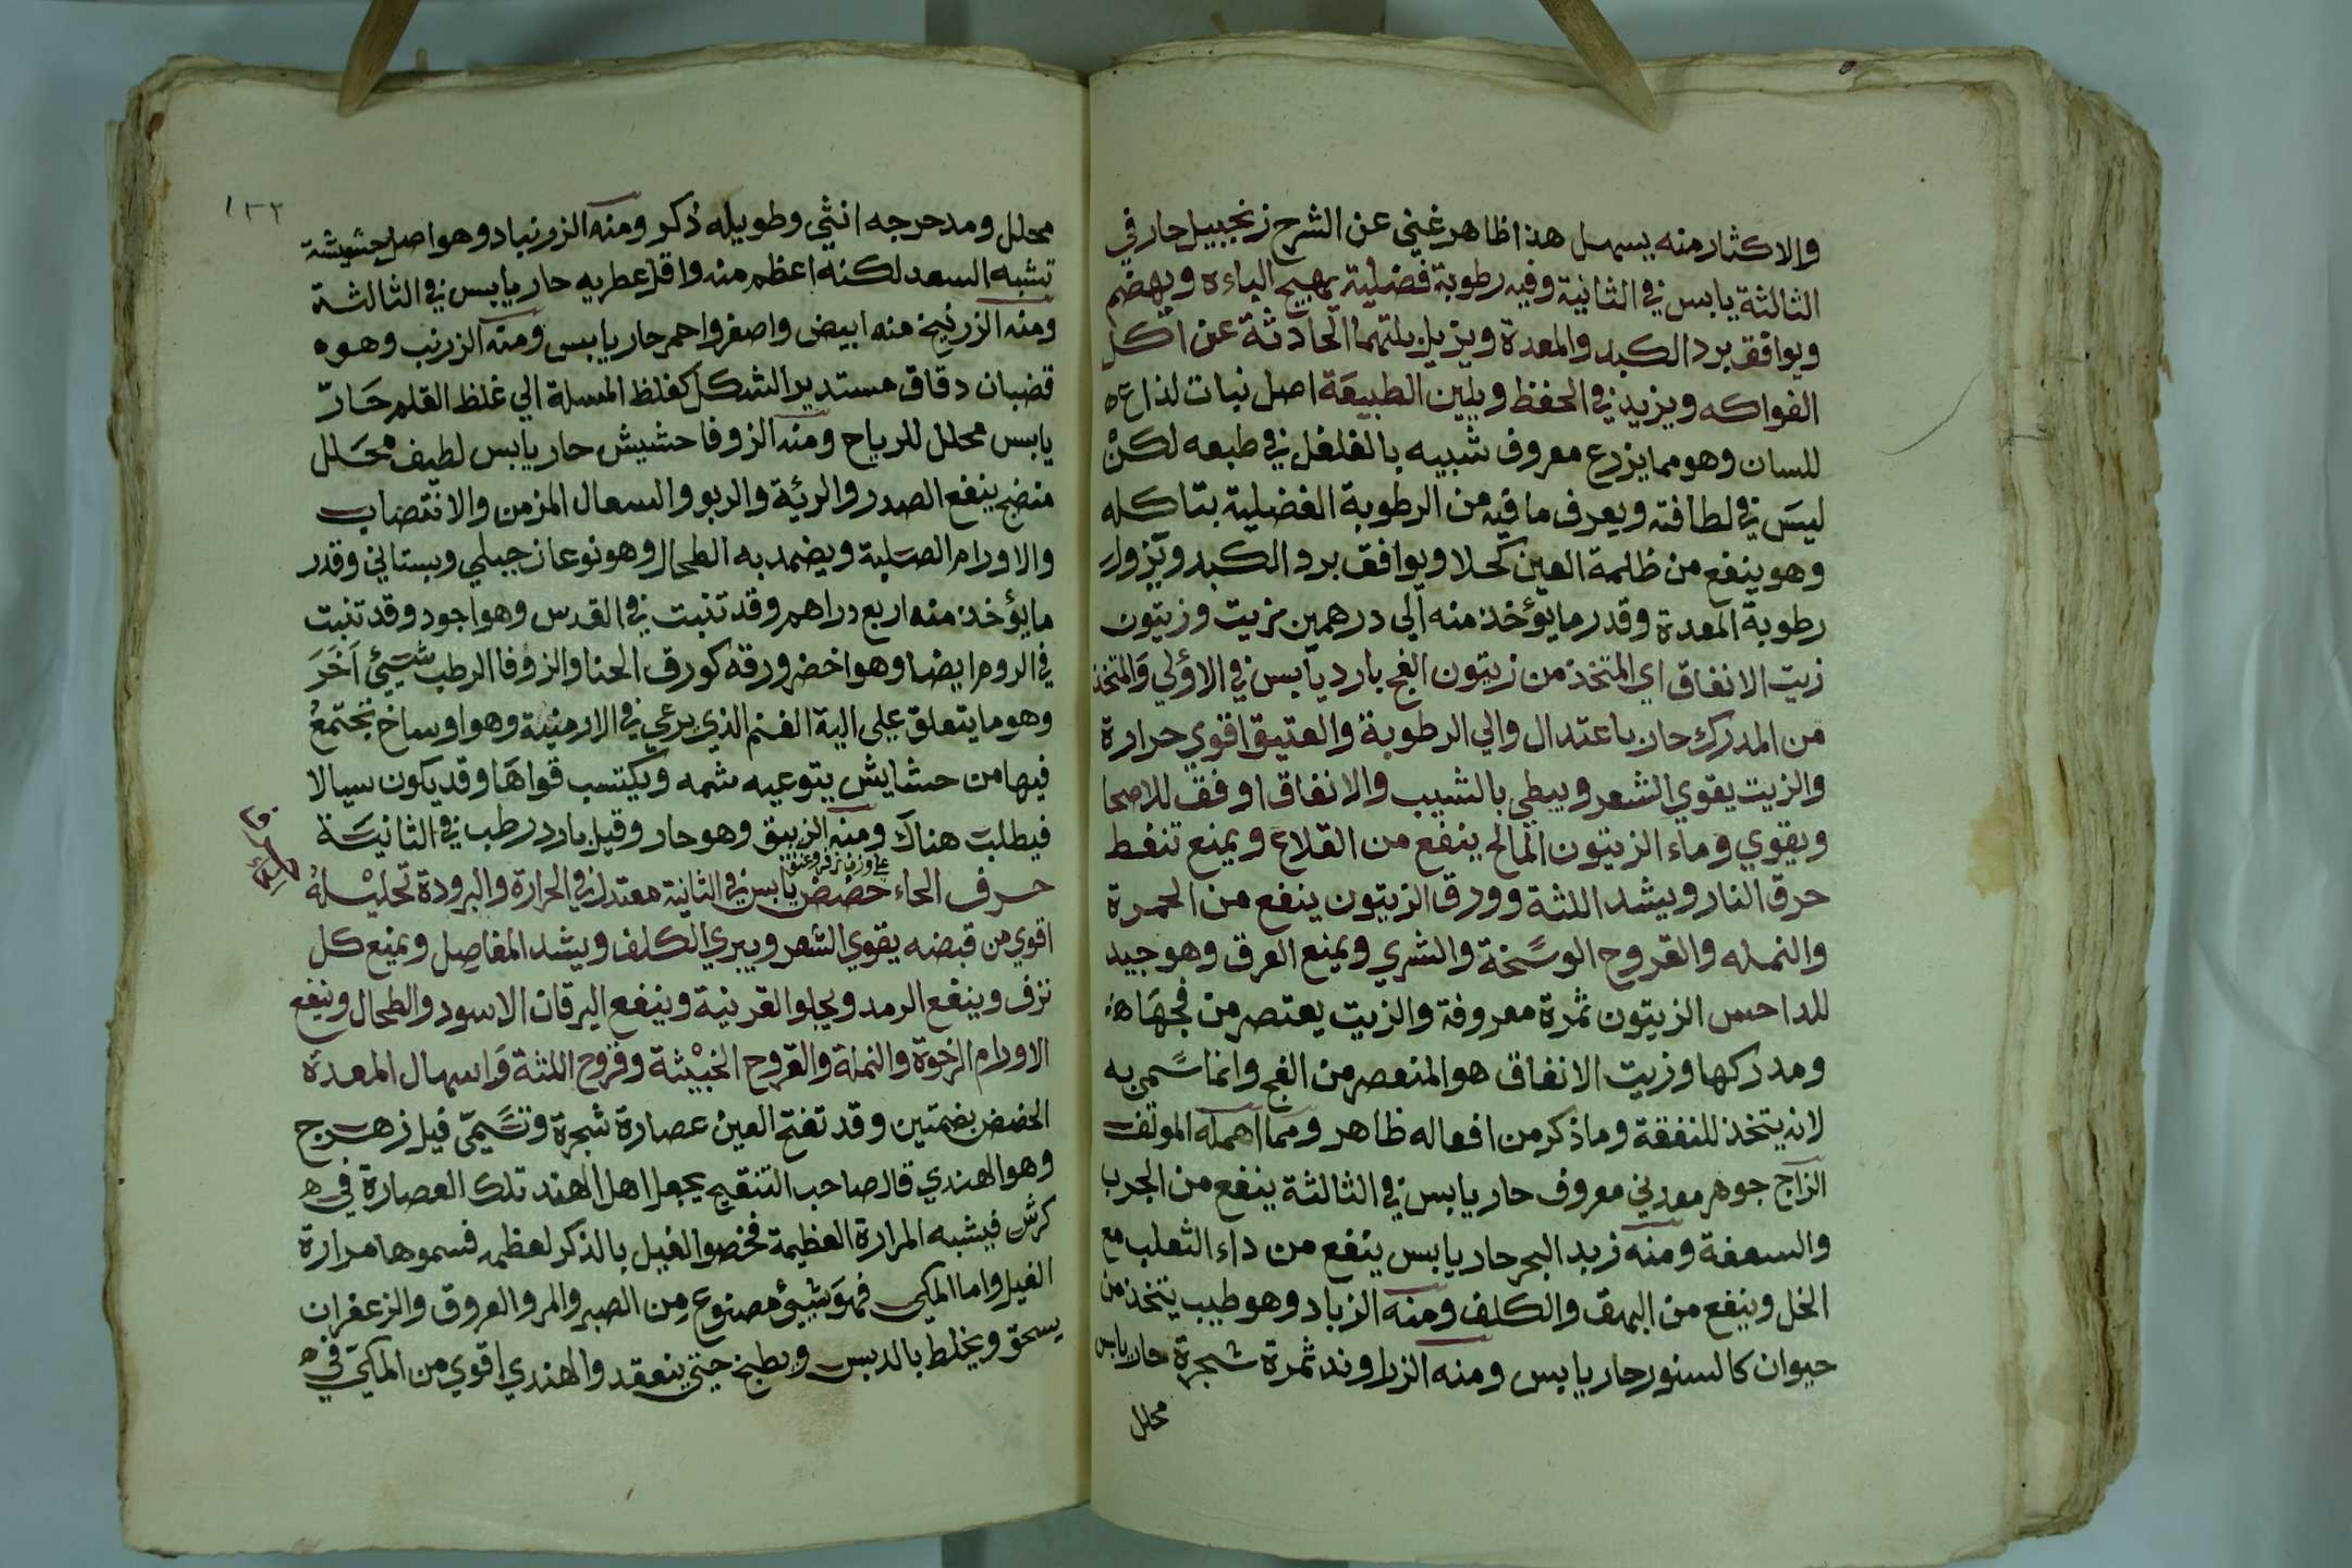 والاكثار منه يسهل هذا ظاهر غني عن الشرح زنجبيل حار في
الثالثة يابس في الثانية وفيه رطوبة فضلية يهيج الباءه ويهضم
ويوافق برد الكبد والمعدة ويزيل بلتهما الحادثة عن اكل
الفواكه ويزيد في الحفظ ويلين الطبيعة اصل نبات لذاع
للسان وهو مما يزرع معروف شبيه بالفلفل في طبعه لكن
ليس في لطافته ويعرف ما فيه من الرطوبة الفضلية بتاكله
وهو ينفع من ظلمة العين كحلا ويوافق برد الكبد ويزول
رطوبة المعدة وقدر ما يؤخذ منه الي درهمين زيت وزيتون
زيت الانفاق اي المتخذ من زيتون الفج بارد يابس في الاولي والمتخذ
من المدرك حار باعتدال والي الرطوبة والعتيق اقوي حرارة
والزيت يقوي الشعر ويبطي بالشيب والانفاق اوفق للاصحا
ويقوي وماء الزيتون المالح ينفع من القلاع ويمنع تنفط
حرق النار ويشد اللثة وورق الزيتون ينفع من الحمرة
والنمله والقروح الوسخة والشري ويمنع العرق وهو جيد
للداحس الزيتون ثمرة معروفة والزيت يعتصر من فجها
ومدركها وزيت الانفاق هو المنعصر من الفج وانما سمي به
لانه يتخذ للنفقة وما ذكر من افعاله ظاهر ومما اهمله المولف
الزاج جوهر معدني معروف حار يابس في الثالثة ينفع من الجرب
والسعفة ومنه زبد البحر حار يابس ينفع من داء الثعلب مع
الخل وينفع من البهق والكلف ومنه الزباد وهو طيب يتخذ من
حيوان كالسنور حار يابس ومنه الزراوند ثمرة شجرة حار يابس
محلل
١٣٢
محلل ومدحرجه انثي وطويله ذكر ومنه الزرنباد وهو اصل حشيشة
تشبه السعد لكنه اعظم منه واقل عطريه حار يابس في الثالثة
ومنه الزرنيخ منه ابيض واصفر واحمر حار يابس ومنه الزرنب وهو
قضبان دقاق مستدير الشكل كغلظ المسلة الي غلظ القلم حار
يابس محلل للرياح ومنه الزوفا حشيش حار يابس لطيف محلل
منضج ينفع الصدر والرئة والربو والسعال المزمن والانتصاب
والاورام الصلبة ويضمد به الطحال وهو نوعان جبلي وبستاني وقدر
ما يؤخذ منه اربع دراهم وقد تنبت في القدس وهو اجود وقد تنبت
في الروم ايضا وهو اخضر ورقه كورق الحنا والزوفا الرطب شيئ اخر
وهو ما يتعلق علي الية الغنم الذي يرعي في الارمنية وهو اوساخ تجتمع
فيها من حشايش يتوعيه شمه ويكتسب قواها وقد يكون سيالا
فيطلبت هناك ومنه الزيبق وهو حار وقيل بارد رطب في الثانية
علي وزن زفر وعنق
حرف الحاء حضض يابس في الثانية معتدل في الحرارة والبرودة تحليله
اقوي من قبضه يقوي الشعر ويبري الكلف ويشد المفاصل ويمنع كل
نزف وينفع الرمد ويجلو القرنية وينفع اليرقان الاسود والطحال وينفع
الاورام الرخوة والنملة والقروح الخبيثة وقروح اللثة واسهال المعدة
الحضض بضمتين وقد تفتح العين عصارة شجرة وتسمي فيل زهرج
وهو الهندي قال صاحب التنقيح يجعل اهل الهند تلك العصارة في
كرش فيشبه المرارة العظيمة فخصوا الفيل بالذكر لعظمه فسموها مرارة
الفيل واما المكي فهو شيئ مصنوع من الصبر والمر والعروق والزعفران
يسحق ويخلط بالدبس ويطبخ حتي ينعقد والهندي اقوي من المكي في